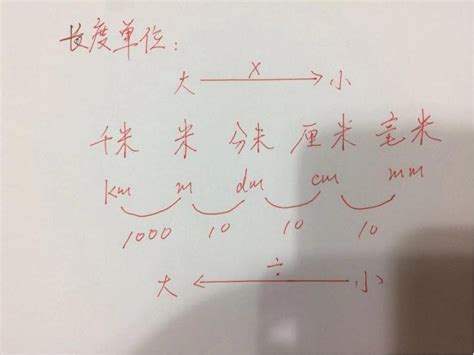 长度单位：
大 × 小
千米 米 分米 厘米 毫米
km m dm cm mm
1000 10 10 10
大 ÷ 小